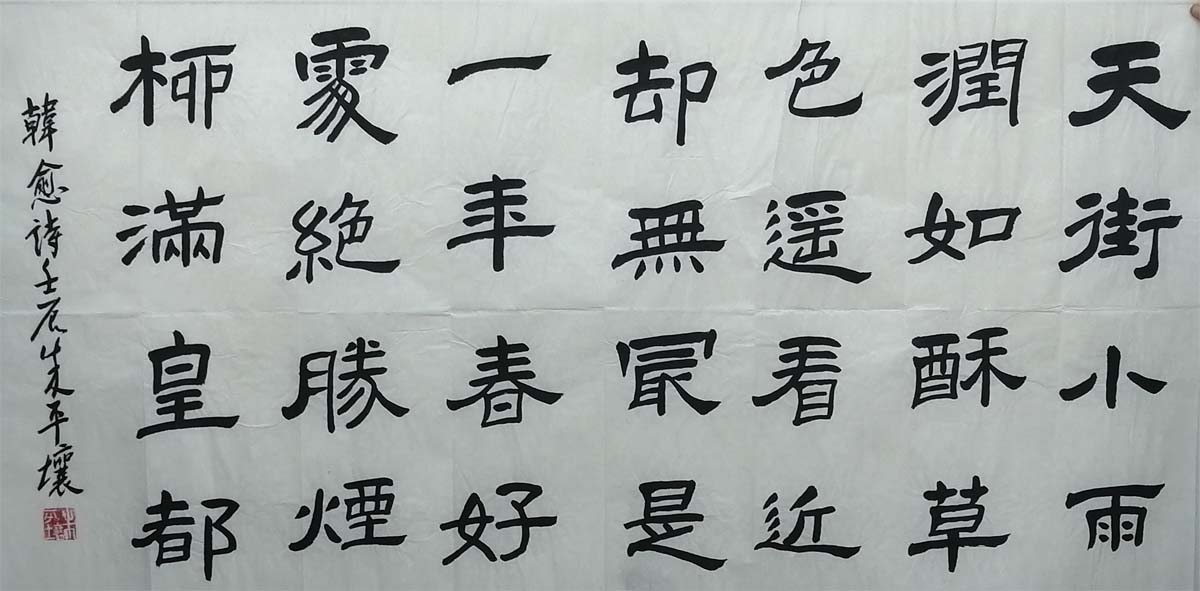 天街小雨
潤如酥草
色遥看近
却無冣是
一年春好
處絕勝煙
柳滿皇都
韓愈詩壬辰年朱平壤